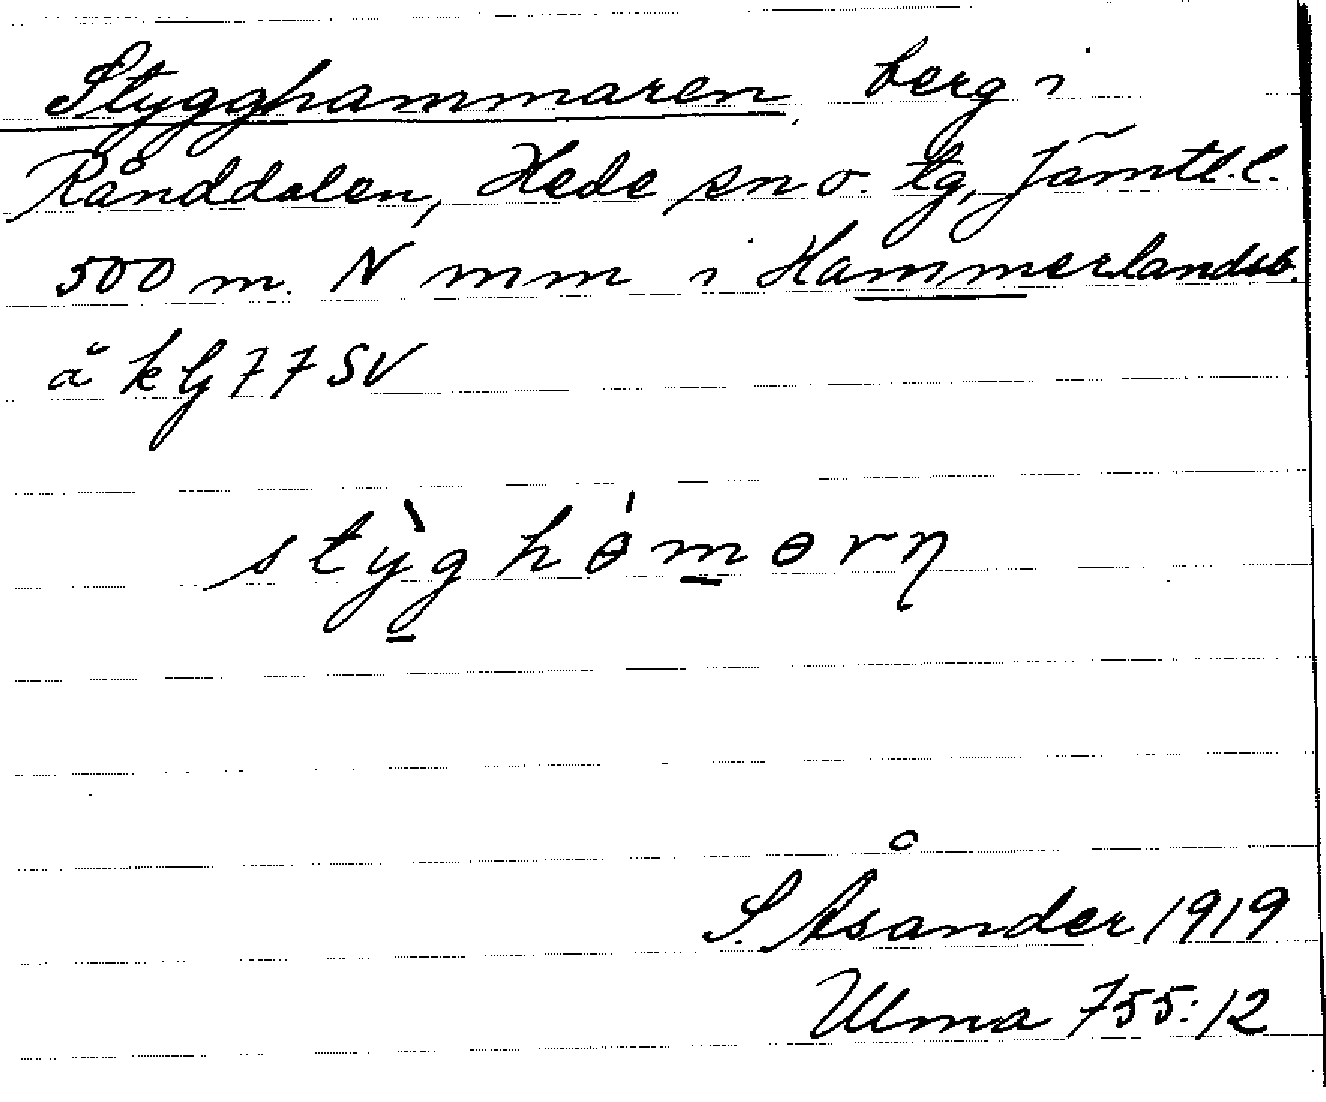 Stygghammaren, berg i
Rånddalen, Hede sn o. tg, Jämtl. l.
500 m. N mm i Hammerlandsb.
å kbl 77 SV
stỳghɵ́mɵrn̥
S. Åsander 1919
Ulma 755:12